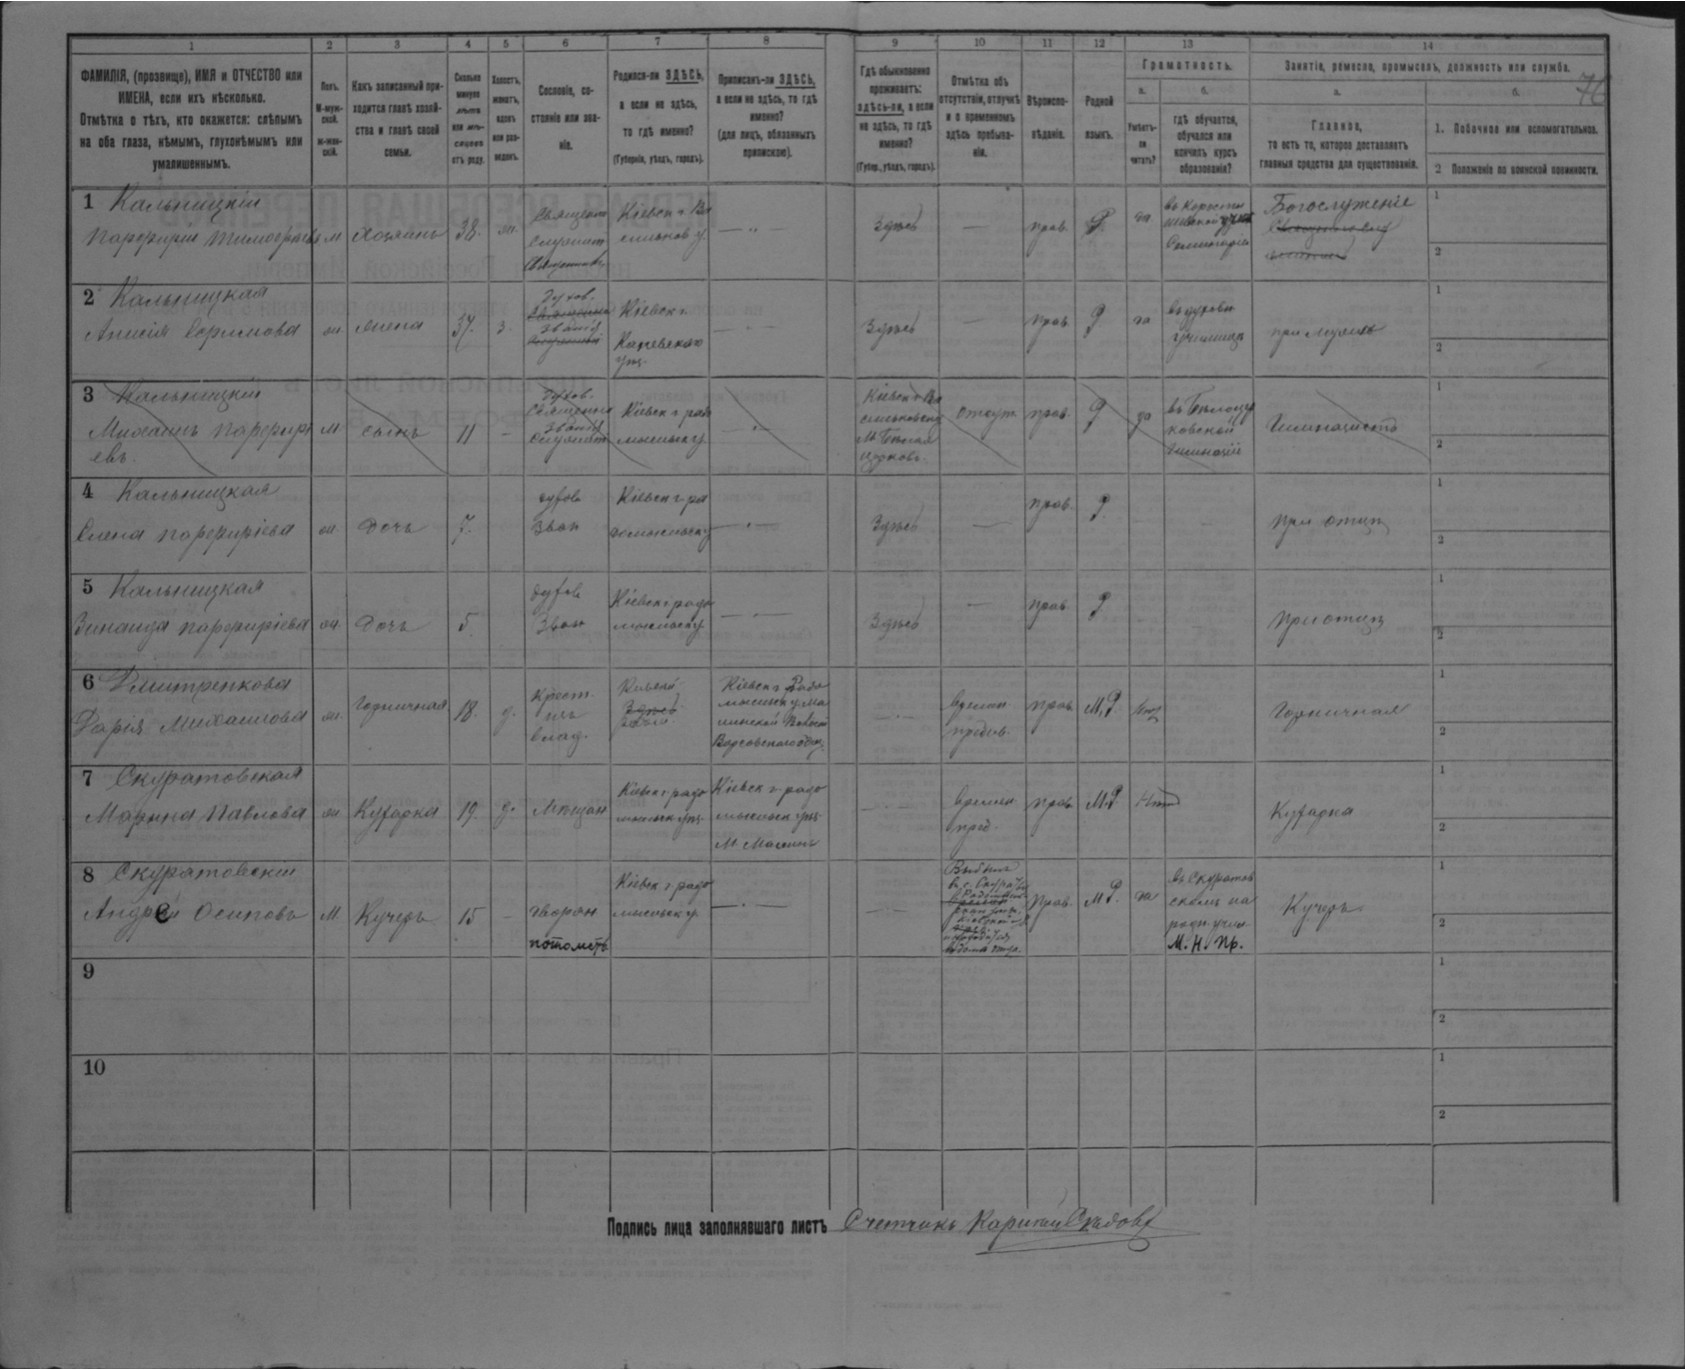 1 2 3 4 5 6 7 8 9 10 11 12 13 14
ФАМИЛІЯ, (прозвище), ИМЯ и ОТЧЕСТВО или
ИМЕНА, если ихъ нѣсколько.
Отмѣтка о тѣхъ, кто окажется: слѣпымъ
на оба глаза, нѣмымъ, глухонѣмымъ или
умалишеннымъ.
Полъ.
М-муж-
ской.
ж-жен-
скій.
Какъ записанный при-
ходится главѣ хозяй-
ства и главѣ своей
семьи.
Сколько
минуло
лѣтъ
или мѣ-
сяцевъ
отъ роду.
Холостъ,
женатъ,
вдовъ
или раз-
веденъ.
Сословіе, со-
стояніе или зва-
ніе.
Родился-ли ЗДѢСЬ,
а если не здѣсь,
то гдѣ именно?
(Губернія, уѣздъ, городъ).
Приписанъ-ли ЗДѢСЬ,
а если не здѣсь, то гдѣ
именно?
(для лицъ, обязанныхъ
припискою).
Гдѣ обыкновенно
проживаетъ:
здѣсь-ли, а если
не здѣсь, то гдѣ
именно?
(Губер., уѣздъ, городъ).
Отмѣтка объ
отсутствіи, отлучкѣ
и о временномъ
здѣсь пребыва-
ніи.
Вѣроиспо-
вѣданіе.
Родной
языкъ.
Грамотность.
а.
Умѣетъ-
ли
читать?
б.
гдѣ обучается,
обучался или
кончилъ курсъ
образованія?
Занятіе, ремесло, промыселъ, должность или служба.
76
а.
Главное,
то есть то, которое доставляетъ
главныя средства для существованія.
б.
1. Побочное или вспомогательное.
2 Положеніе по воинской повинности.
1 Кальницкій
Порфирій
м
хозяинъ
38.
ж.
Священно
Служит
Кіевск г. Ва
сильков у.
Здѣсь
—
прав.
Р.
да
Семинаріи
Богослуженіе
1
2
2 Кальницкая
ж
жена
37.
з.
Духов.
званія
Кіевск г.
Каневскаго
уѣз.
Здѣсь
—
прав.
Р
да
въ духовн
училищѣ
при мужѣ
1
2
3 Кальницкій
Михаилъ Порфирі
евъ
М
сынъ
11
—
Духов.
званія
Кіевск г. радо
мысльск у.
Кіевск г. Ва
сильковск у
М. Бѣлая
Церковь
отсут.
прав.
Р
да
въ Бѣлоцер
ковской
гимназіи
Гимназистъ
1
2
4 Кальницкая
Елена Порфиріева
ж.
Дочь
7.
духов
Зван
Кіевск г. ра
домысльск у
Здѣсь
—
прав.
Р.
при отцѣ
1
2
5 Кальницкая
Зинаида Порфиріева
ж.
Дочь
5.
духов
Зван
Кіевск г радо
мысльск у.
Здѣсь
—
прав.
Р
при отцѣ
1
2
6 Дмитренкова
Дарія Михаилова
ж.
Горничная
18.
д.
Крест.
изъ
влад.
Кіевск г. Радо
мысльск у. Ма
линской Волост
времен
преб.
прав
М.Р.
нѣтъ
Горничная
1
2
7 Скуратовская
Марина Павлова
ж
Кухарка
19.
д.
мѣщан
Кіевск г радо
мысльск уѣз.
Кіевск г. радо
мысльск уѣз.
М. Малинъ
времен
преб.
прав
М.Р.
Нѣтъ
Кухарка
1
2
8 Скуратовскій
Андрей Осиповъ
М.
Кучеръ
15
—
дворян
потомств
Кіевск г радо
мысльск у.
Прав.
М.Р.
да
въ Скуратов
скомъ на
родн. учил.
М. Н. Пр.
Кучеръ
1
2
9
1
2
10
1
2
Подпись лица заполнявшаго листъ Счетчикъ